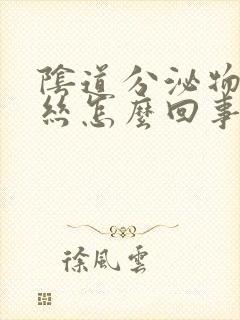 陰道分泌物
絲怎麼回事
徐風雲